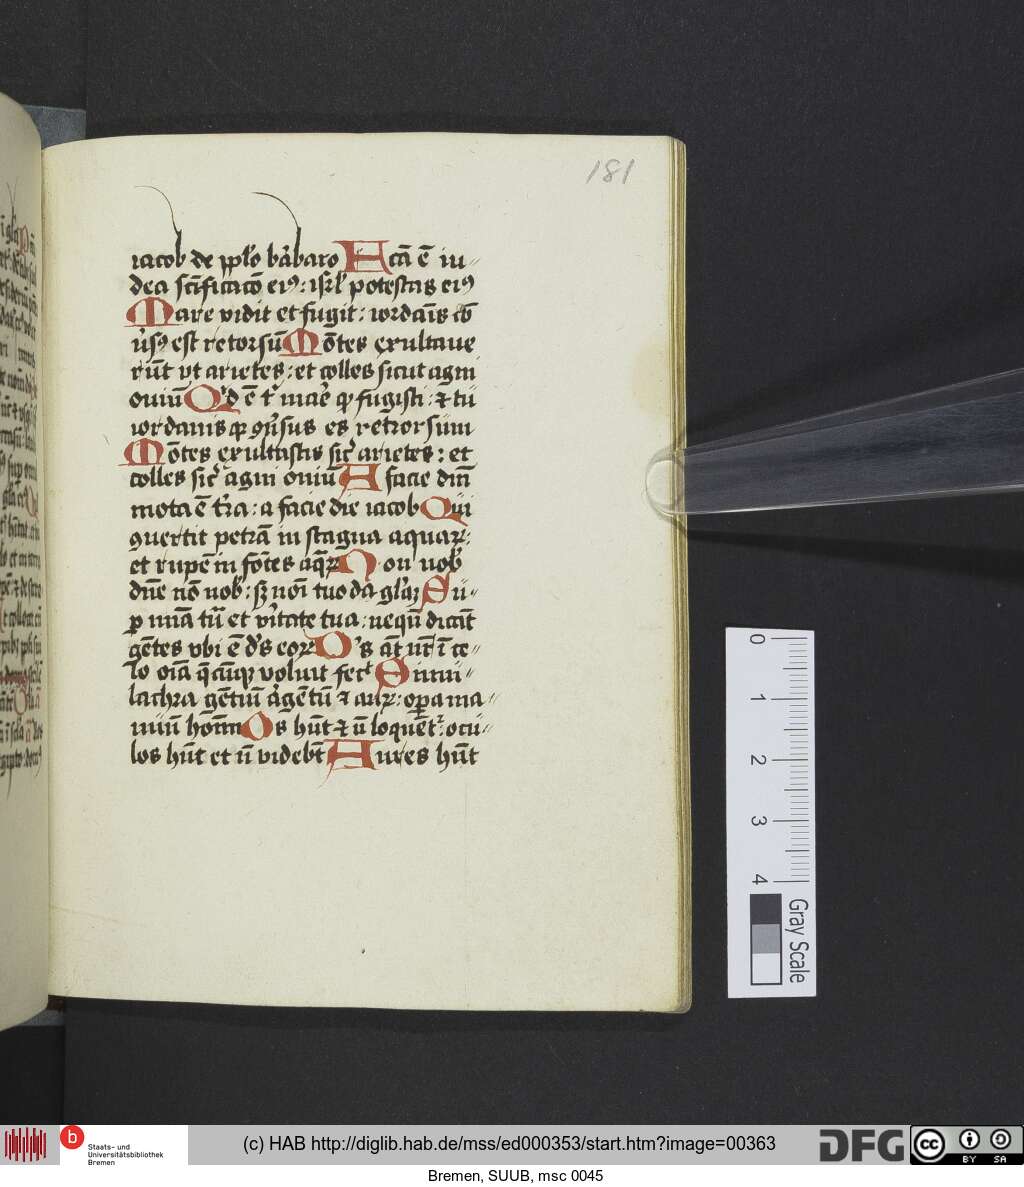 181
iacob de pplo bárbaro Fctā ē iu-
dea sctīficacō eiꝰ: isrl' potestas eiꝰ
Mare vidit et fugit: iordaīs cō
úsꝰ est retorsū Mōtes exultaue
rūt vt arietes: et colles sicut agni
ouiū Qd ē t' mar̄e qꝛ fugisti: ⁊ tu
iordanis qꝛ ꝯúsus es retrorsum
Mōtes exultastis sic̄ arietes: et
colles sic̄ agni ouiū A facie dnī
mota ē tr̄a: a facie dīe iacob Qui
ꝯuertit petrā in stagna aquaꝝ:
et rupē in fōtes aq̄ꝝ Non nob'
dn̄e nō nob': sꝫ noī tuo da gl'aꝫ Su-
ꝑ mīa tū et v̓itate tua: nequn̄ dicāt
gētes vbi ē d's eoꝝ D's āt nr̄ ī ce-
lo oīa q̄cūqꝫ voluit fec̄t Simu-
lachra gētiū argētū ⁊ auꝝ: oꝑa ma-
nuū hoīm Os hn̄t ⁊ n̄ loquēt': ocu-
los hn̄t et n̄ videbt̄ Aures hn̄t
0
1
2
3
4
Gray Scale
b
Staats- und
Universitätsbibliothek
Bremen
(c) HAB http://diglib.hab.de/mss/ed000353/start.htm?image=00363
DFG
cc
BY SA
Bremen, SUUB, msc 0045